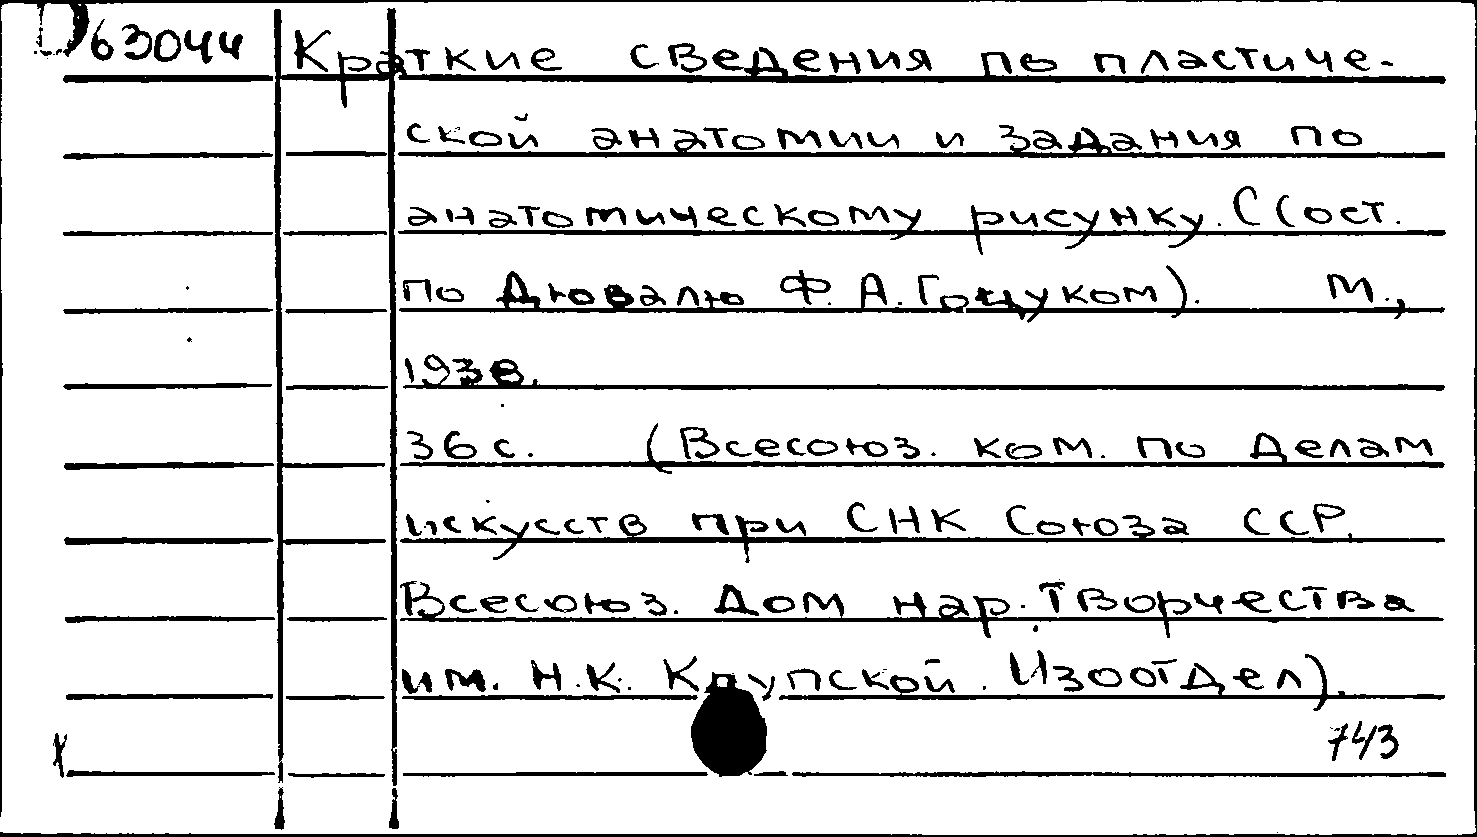 D63044 Краткие сведения по пластиче-
ской анатомии и задания по
анатомическому рисунку. (Сост.
по Дювалю Ф. А. Гоцуком). М.,
1938.
36 с. (Всесоюз. ком. по делам
искусств при СНК Союза ССР.
Всесоюз. Дом нар. творчества
им. Н.К. Крупской. Изоотдел).
743